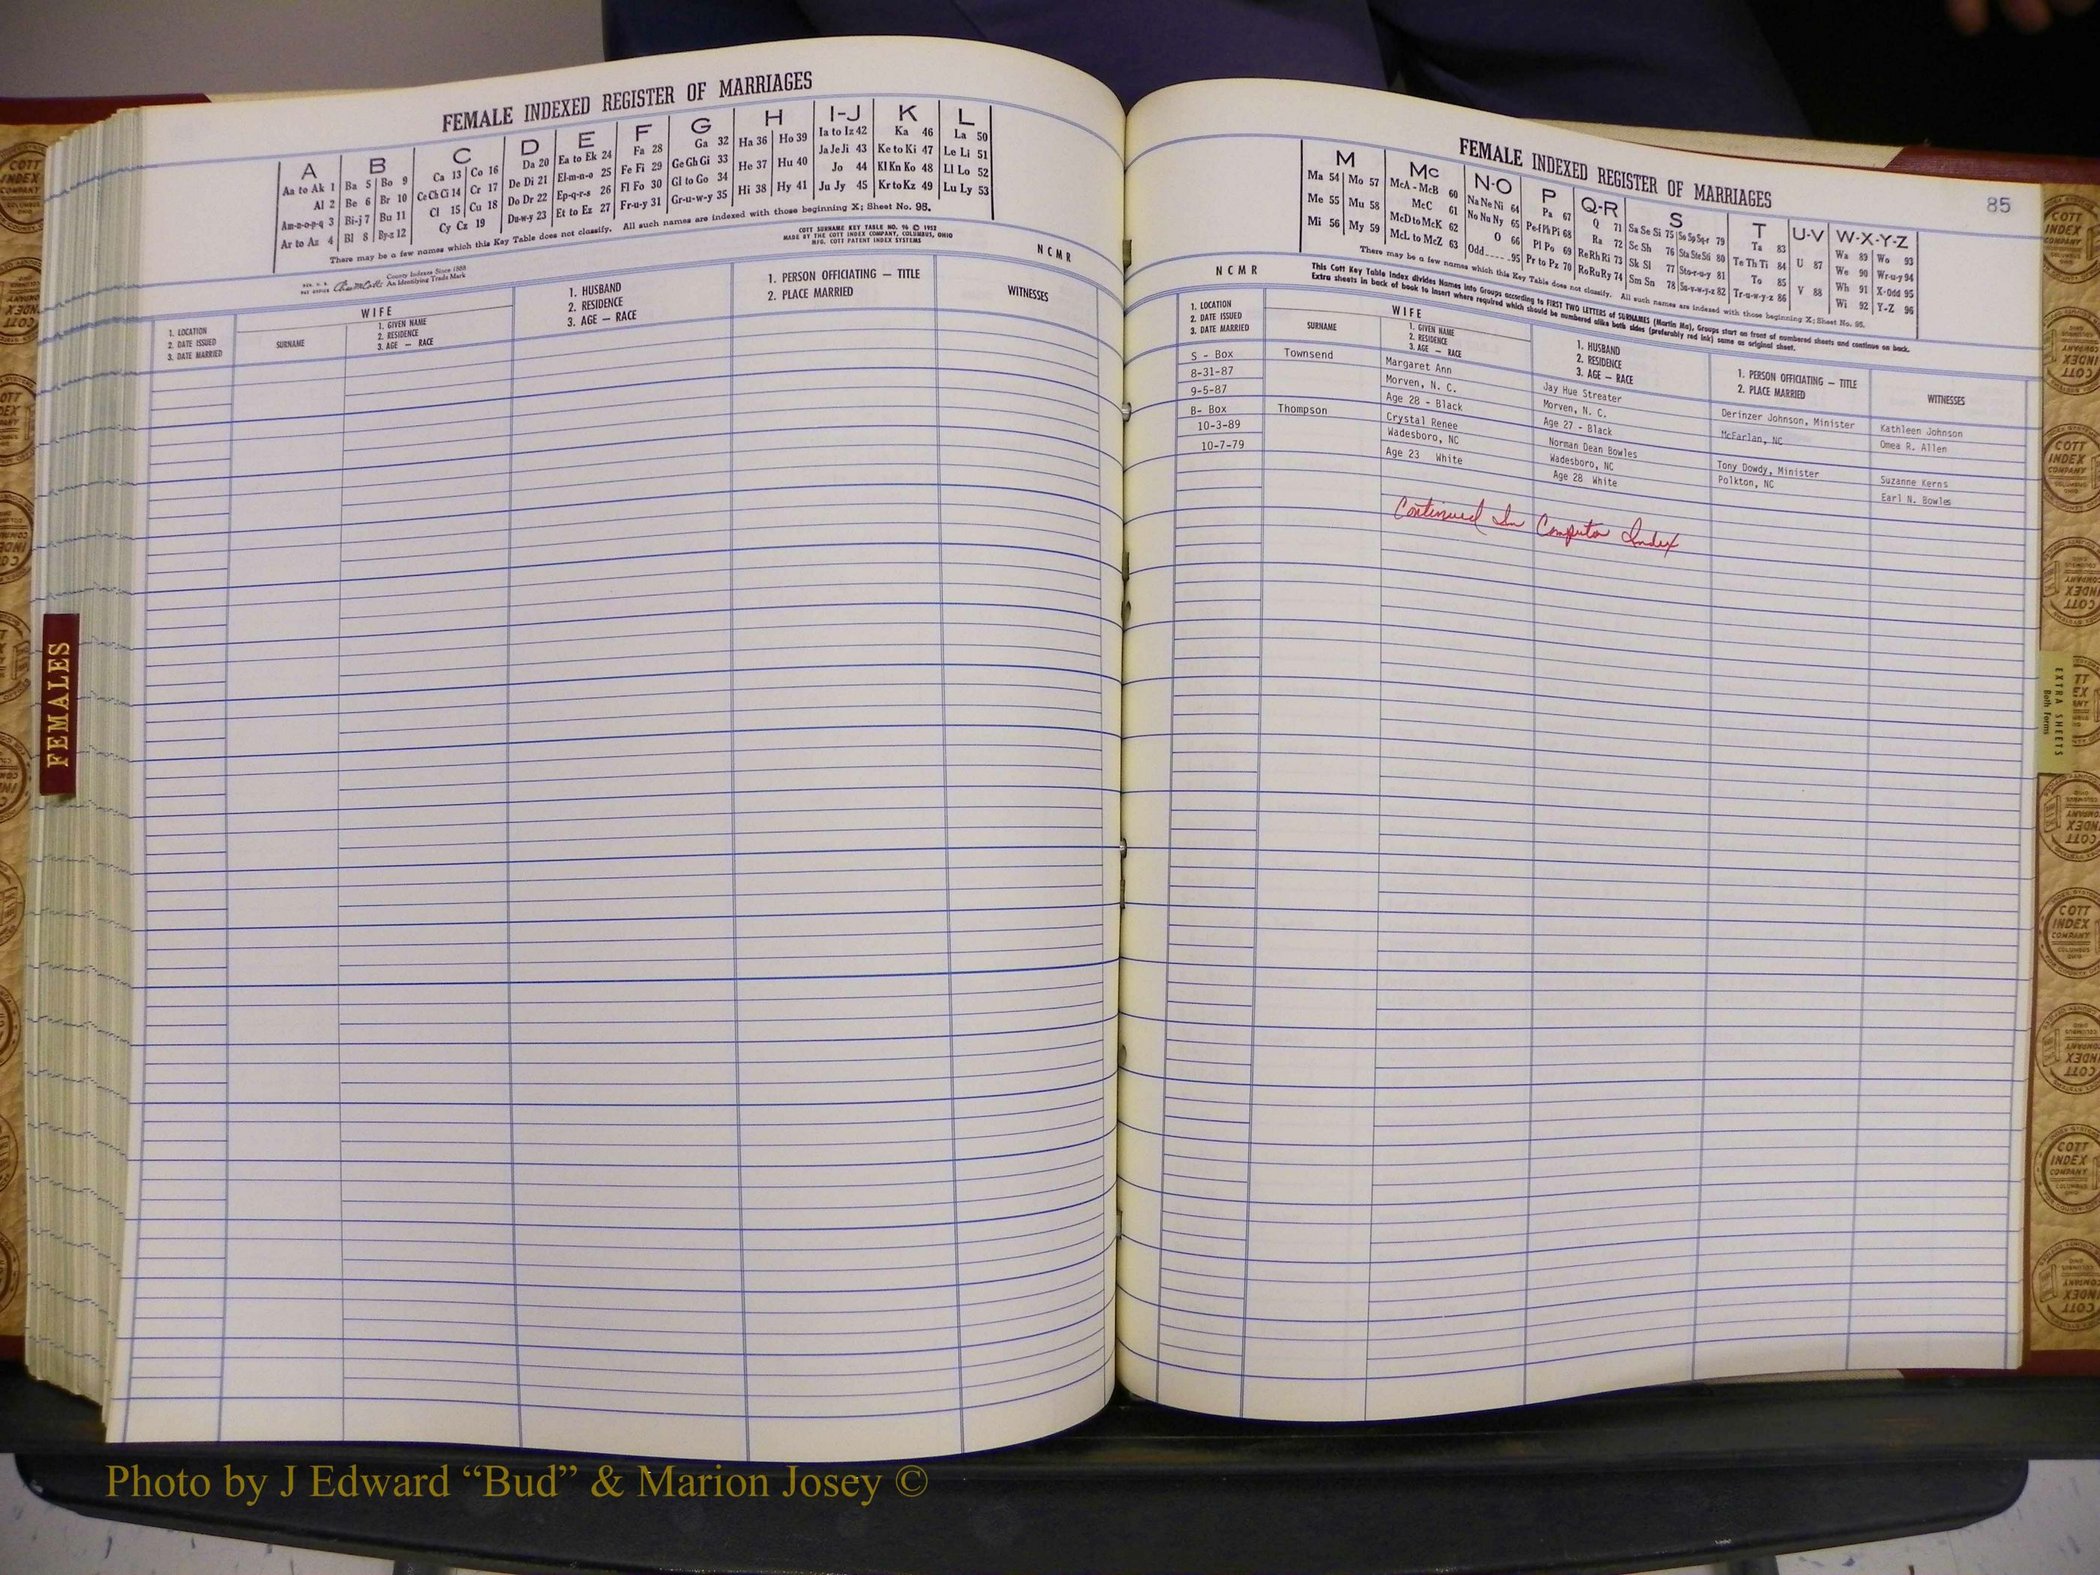 FEMALE INDEXED REGISTER OF MARRIAGES
A B C D E F G H I-J K L
Aa to Ak 1 Ba 5 Bo 9 Ca 13 Co 16 Da 20 Ea to Ek 24 Fa 28 Ga 32 Ha 36 Ho 39 Ia to Iz 42 Ka 46 La 50
Al 2 Be 6 Br 10 Ce Ch Ci 14 Cr 17 De Di 21 El-m-n-o 25 Fe Fi 29 Ge Gh Gi 33 He 37 Hu 40 Ja Je Ji 43 Ke to Ki 47 Le Li 51
Am-n-o-p-q 3 Bi-j 7 Bu 11 Cl 15 Cu 18 Do Dr 22 Ep-q-r-s 26 Fl Fo 30 Gl to Go 34 Hi 38 Hy 41 Jo 44 Kl Kn Ko 48 Ll Lo 52
Ar to Az 4 Bl 8 By-z 12 Cy Cz 19 Du-w-y 23 Et to Ez 27 Fr-u-y 31 Gr-u-w-y 35 Ju Jy 45 Kr to Kz 49 Lu Ly 53
There may be a few names which this Key Table does not classify. All such names are indexed with those beginning X; Sheet No. 95.
COTT SURNAME KEY TABLE NO. 96 © 1952
MADE BY THE COTT INDEX COMPANY, COLUMBUS, OHIO
MFG. COTT PATENT INDEX SYSTEMS
County Indexes Since 1888
An Identifying Trade Mark
N C M R
1. LOCATION
2. DATE ISSUED
3. DATE MARRIED
WIFE
SURNAME
1. GIVEN NAME
2. RESIDENCE
3. AGE — RACE
1. HUSBAND
2. RESIDENCE
3. AGE — RACE
1. PERSON OFFICIATING — TITLE
2. PLACE MARRIED
WITNESSES
FEMALES
FEMALE INDEXED REGISTER OF MARRIAGES
85
M Mc N-O P Q-R S T U-V W-X-Y-Z
Ma 54 Mo 57 McA - McB 60 Na Ne Ni 64 Pa 67 Q 71 Sa Se Si 75 So Sp Sq-r 79 Ta 83 U 87 Wa 89 Wo 93
Me 55 Mu 58 McC 61 No Nu Ny 65 Pe-f Ph Pi 68 Ra 72 Sc Sh 76 Sta Ste Sti 80 Te Th Ti 84 V 88 We 90 Wr-u-y 94
Mi 56 My 59 McD to McK 62 O 66 Pl Po 69 Re Rh Ri 73 Sk Sl 77 Sto-r-u-y 81 To 85 Wh 91 X-Odd 95
McL to McZ 63 Odd 95 Pr to Pz 70 Ro Ru Ry 74 Sm Sn 78 Su-v-w-y-z 82 Tr-u-w-y-z 86 Wi 92 Y-Z 96
There may be a few names which this Key Table does not classify. All such names are indexed with those beginning X; Sheet No. 95.
This Cott Key Table Index divides Names into Groups according to FIRST TWO LETTERS of SURNAMES (Martin Ma), Groups start on front of numbered sheets and continue on back.
Extra sheets in back of book to insert where required which should be numbered alike both sides (preferably red ink) same as original sheet.
N C M R
1. LOCATION
2. DATE ISSUED
3. DATE MARRIED
WIFE
SURNAME
1. GIVEN NAME
2. RESIDENCE
3. AGE — RACE
1. HUSBAND
2. RESIDENCE
3. AGE — RACE
1. PERSON OFFICIATING — TITLE
2. PLACE MARRIED
WITNESSES
S - Box Townsend Margaret Ann Jay Hue Streater Derinzer Johnson, Minister Kathleen Johnson
8-31-87 Morven, N. C. Morven, N. C. McFarlan, NC Omea R. Allen
9-5-87 Age 28 - Black Age 27 - Black
B- Box Thompson Crystal Renee Norman Dean Bowles Tony Dowdy, Minister Suzanne Kerns
10-3-89 Wadesboro, NC Wadesboro, NC Polkton, NC Earl N. Bowles
10-7-79 Age 23 White Age 28 White
Continued In Computor Index
EXTRA SHEETS
Both Forms
COTT
INDEX
COMPANY
COLUMBUS
OHIO
Photo by J Edward “Bud” & Marion Josey ©